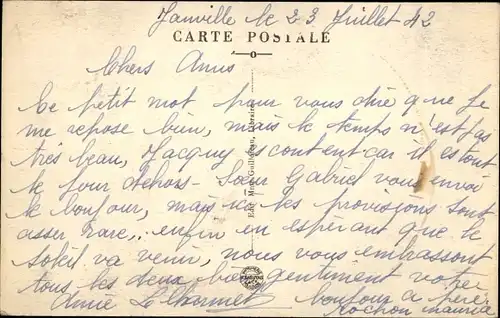 Janville le 23 Juillet 42
CARTE POSTALE
Chers Amis
Ce petit mot pour vous dire que je
me repose bien, mais le temps n'est pas
très beau, Jacquy content car il est tout
le jour dehors - Sœur Gabriel vous envoi
le bonjour, mais ici les provisions sont
asser rare, enfin en espérant que le
soleil va venir, nous vous embrassons
tous les deux bien gentiment votre
Amie bonjour a père
Rochon maurice